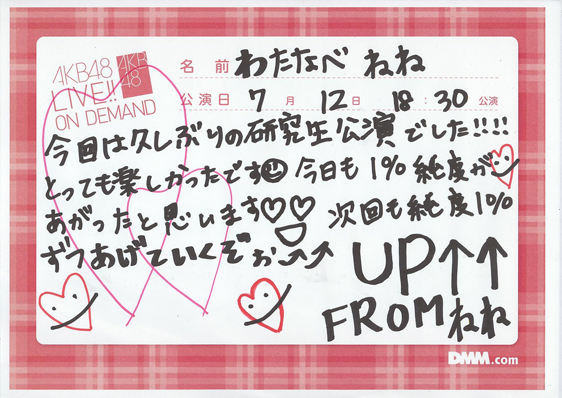 AKB48
LIVE!!
ON DEMAND
AKB
48
名前 わたなべ ねね
公演日 7月 12日 18:30 公演
今回は久しぶりの研究生公演でした!!!!
とっても楽しかったです 今日も1%純度が
あがったと思います♡♡ 次回も純度1%
ずつあげていくぞぉ↗↗ UP↑↑
FROM ねね
DMM.com